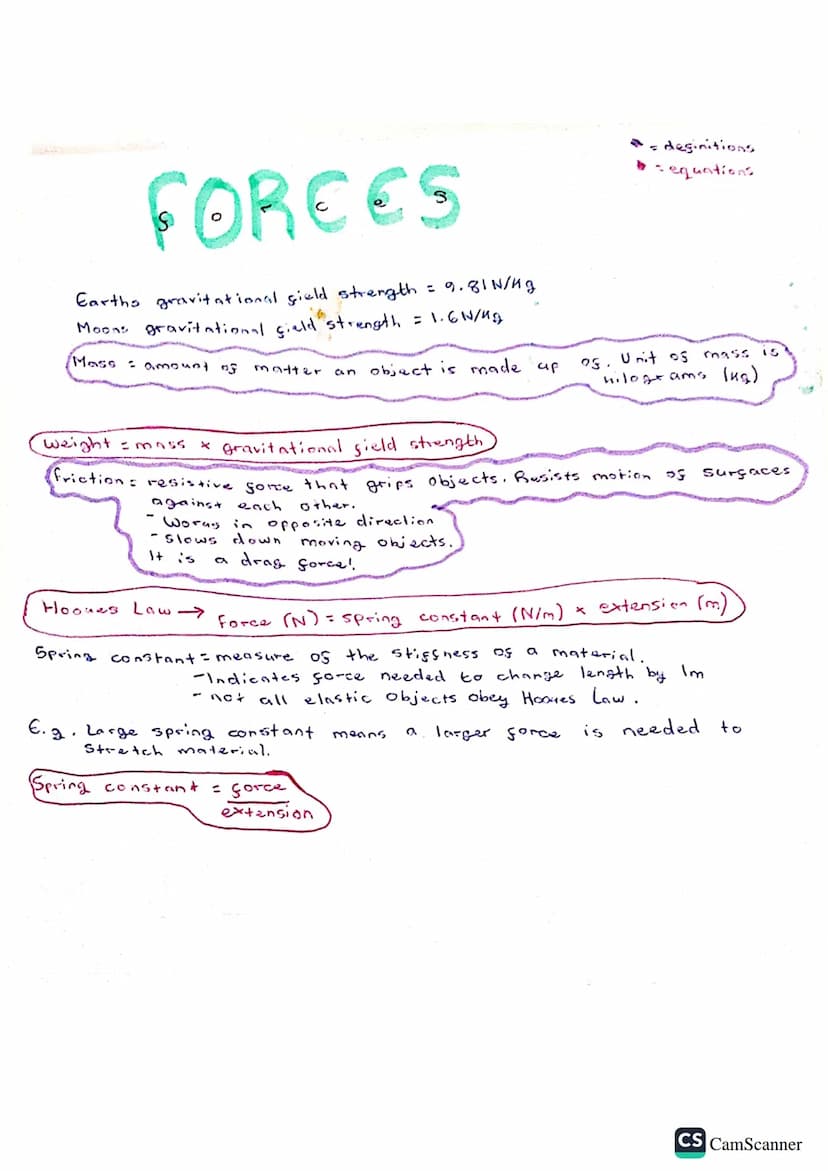 = definitions
= equations
FORCES
forces
Earths gravitational field strength = 9.81N/kg
Moons gravitational field strength = 1.6N/kg
Mass = amount of matter an object is made up of. Unit of mass is
kilograms (kg)
Weight = mass × gravitational field strength
Friction = resistive force that grips objects. Resists motion of surfaces
against each other.
- Works in opposite direction
- Slows down moving objects.
It is a drag force!
Hookes Law → Force (N) = spring constant (N/m) × extension (m)
Spring constant = measure of the stiffness of a material.
- Indicates force needed to change length by 1m
- not all elastic objects obey Hookes Law.
E.g. Large spring constant means a larger force is needed to
stretch material.
Spring constant = force
extension
CS CamScanner